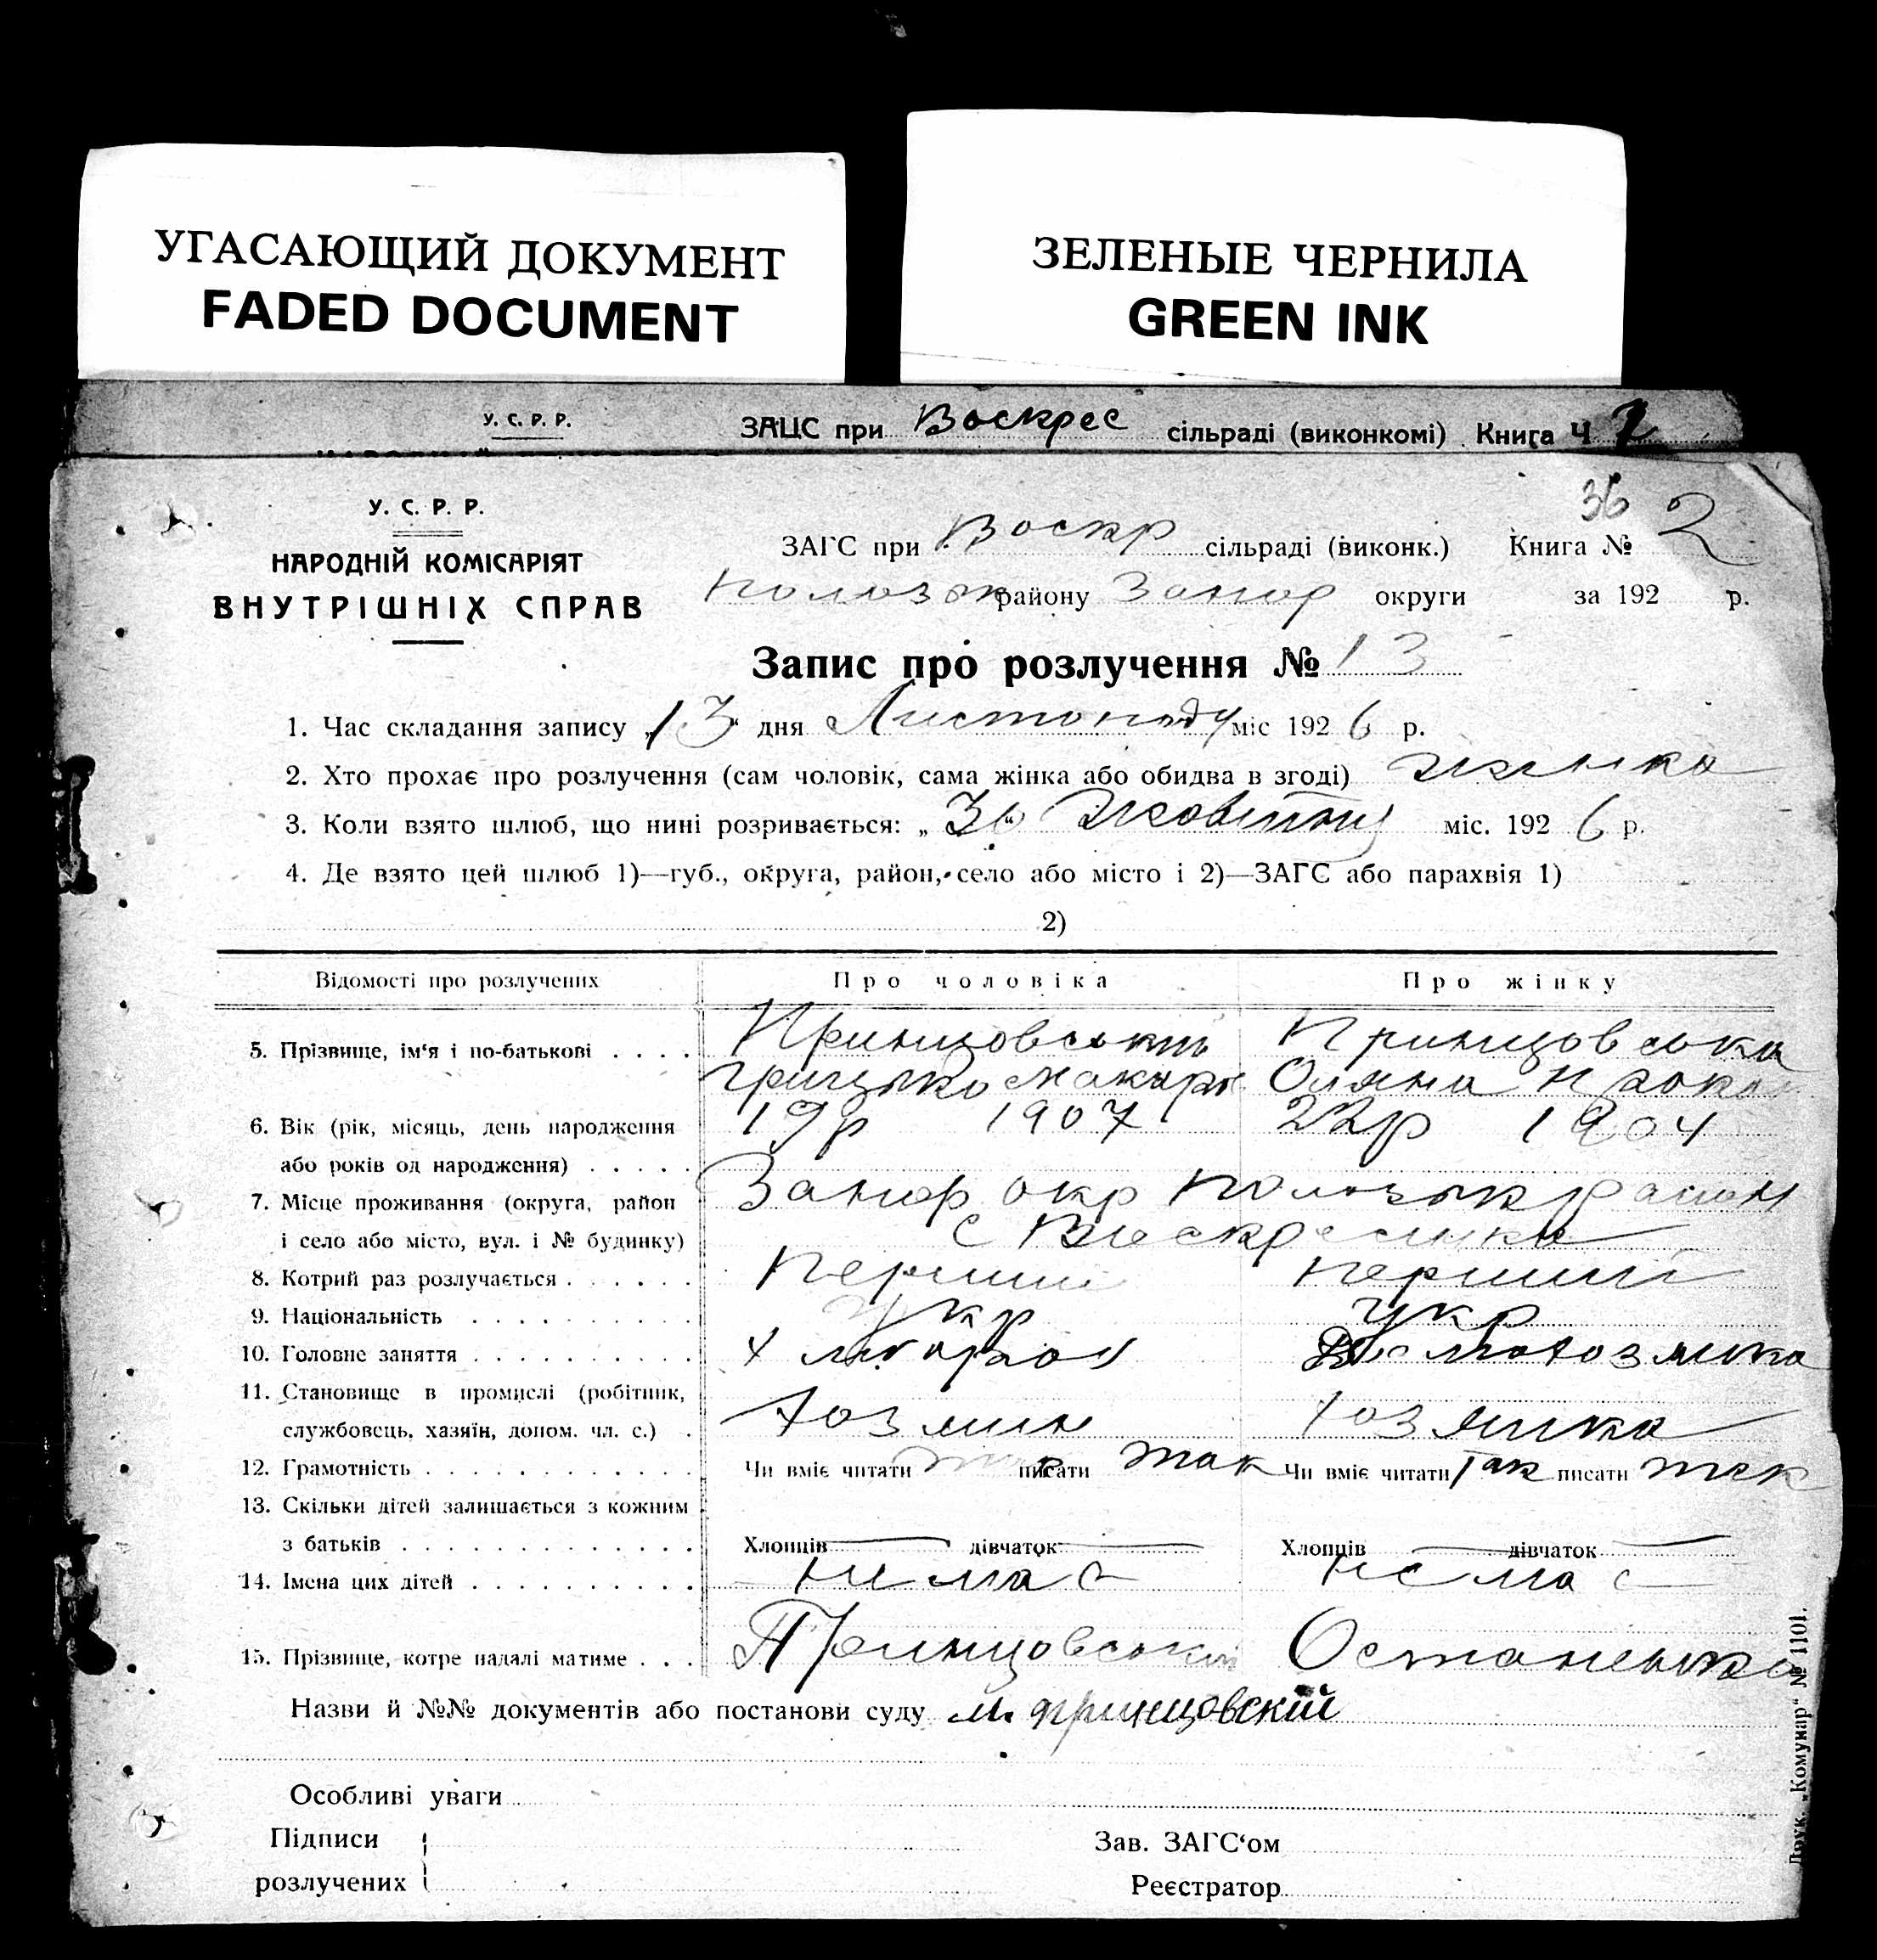 УГАСАЮЩИЙ ДОКУМЕНТ
FADED DOCUMENT
ЗЕЛЕНЫЕ ЧЕРНИЛА
GREEN INK
У. С. Р. Р.
ЗАЦС при Воскрес сільраді (виконкомі) Книга Ч
36
У. С. Р. Р.
НАРОДНІЙ КОМІСАРІЯТ
ВНУТРІШНІХ СПРАВ
ЗАГС при Воскр сільраді (виконк.) Книга № 2
району Запор округи за 192 р.
Запис про розлучення № 13
1. Час складання запису „13“ дня Листопаду міс 1926 р.
2. Хто прохає про розлучення (сам чоловік, сама жінка або обидва в згоді) жінка
3. Коли взято шлюб, що нині розривається: „ “ Жовтня міс. 1926 р.
4. Де взято цей шлюб 1)—губ., округа, район, село або місто і 2)—ЗАГС або парахвія 1)
2)
Відомості про розлучених Про чоловіка Про жінку
5. Прізвище, ім‘я і по-батькові Принцовський Принцовська
Грицько Макарів Оляна
6. Вік (рік, місяць, день народження 19р 1907 22р 1904
або років од народження)
7. Місце проживання (округа, район Запор окр район
і село або місто, вул. і № будинку) с Воскресинка
8. Котрий раз розлучається перший перший
9. Національність укр укр
10. Головне заняття хлібороб домохозяйка
11. Становище в промислі (робітник,
службовець, хазяїн, допом. чл. с.) хозяин хозяйка
12. Грамотність Чи вміє читати так писати так Чи вміє читати так писати так
13. Скільки дітей залишається з кожним
з батьків Хлопців — дівчаток — Хлопців — дівчаток —
14. Імена цих дітей немає немає
15. Прізвище, котре надалі матиме Принцовський Остапенко
Назви й №№ документів або постанови суду
Особливі уваги
Підписи
розлучених
Зав. ЗАГС‘ом
Реєстратор
Друк. „Комунар“ № 1101.